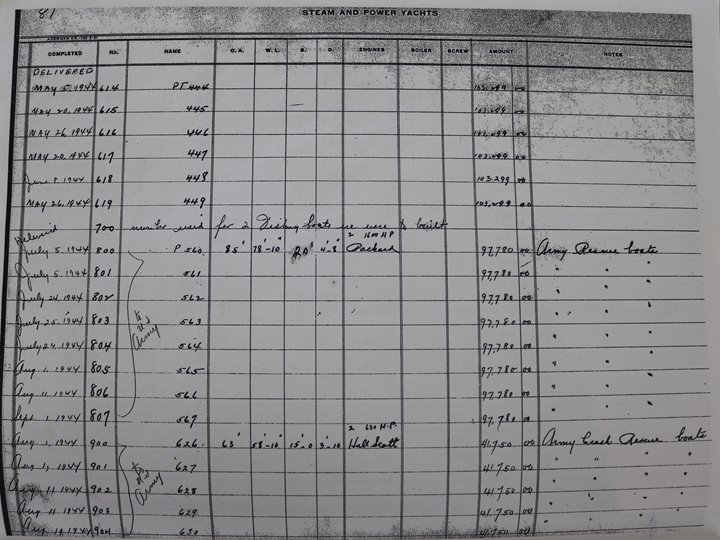 81
STEAM AND POWER YACHTS
COMPLETED No. NAME O.A. W.L. B. D. ENGINES BOILER SCREW AMOUNT NOTES
DELIVERED
May 5, 1944 614 PT 444 103,299 00
May 20, 1944 615 445 103,299 00
May 26, 1944 616 446 103,299 00
May 20, 1944 617 447 103,299 00
June 8, 1944 618 448 103,299 00
May 26, 1944 619 449 103,299 00
Delivered 700 number used for 2 fishing boats we were to built
2 1600 H.P.
July 5, 1944 800 P 560 85' 78'-10" 20' 4'-8" Packard 97,780 00 Army Rescue boats
July 5, 1944 801 561 97,780 00 " " "
July 24, 1944 802 562 97,780 00 " " "
July 25, 1944 803 to US Army 563 97,780 00 " " "
July 24, 1944 804 564 97,780 00 " " "
Aug 1, 1944 805 565 97,780 00 " " "
Aug 11 1944 806 566 97,780 00 " " "
Sept 1, 1944 807 567 97,780 00 " " "
2 630 H.P.
Aug 1, 1944 900 626 63' 58'-10" 15'-0 3'-10" Hall Scott 41,750 00 Army Crash Rescue boats
1944 901 to US Army 627 41,750 00 " " " "
Aug 11 1944 902 628 41,750 00 " " " "
Aug 11 1944 903 629 41,750 00 " " " "
Aug 19 1944 904 630 41,750 00 " " "